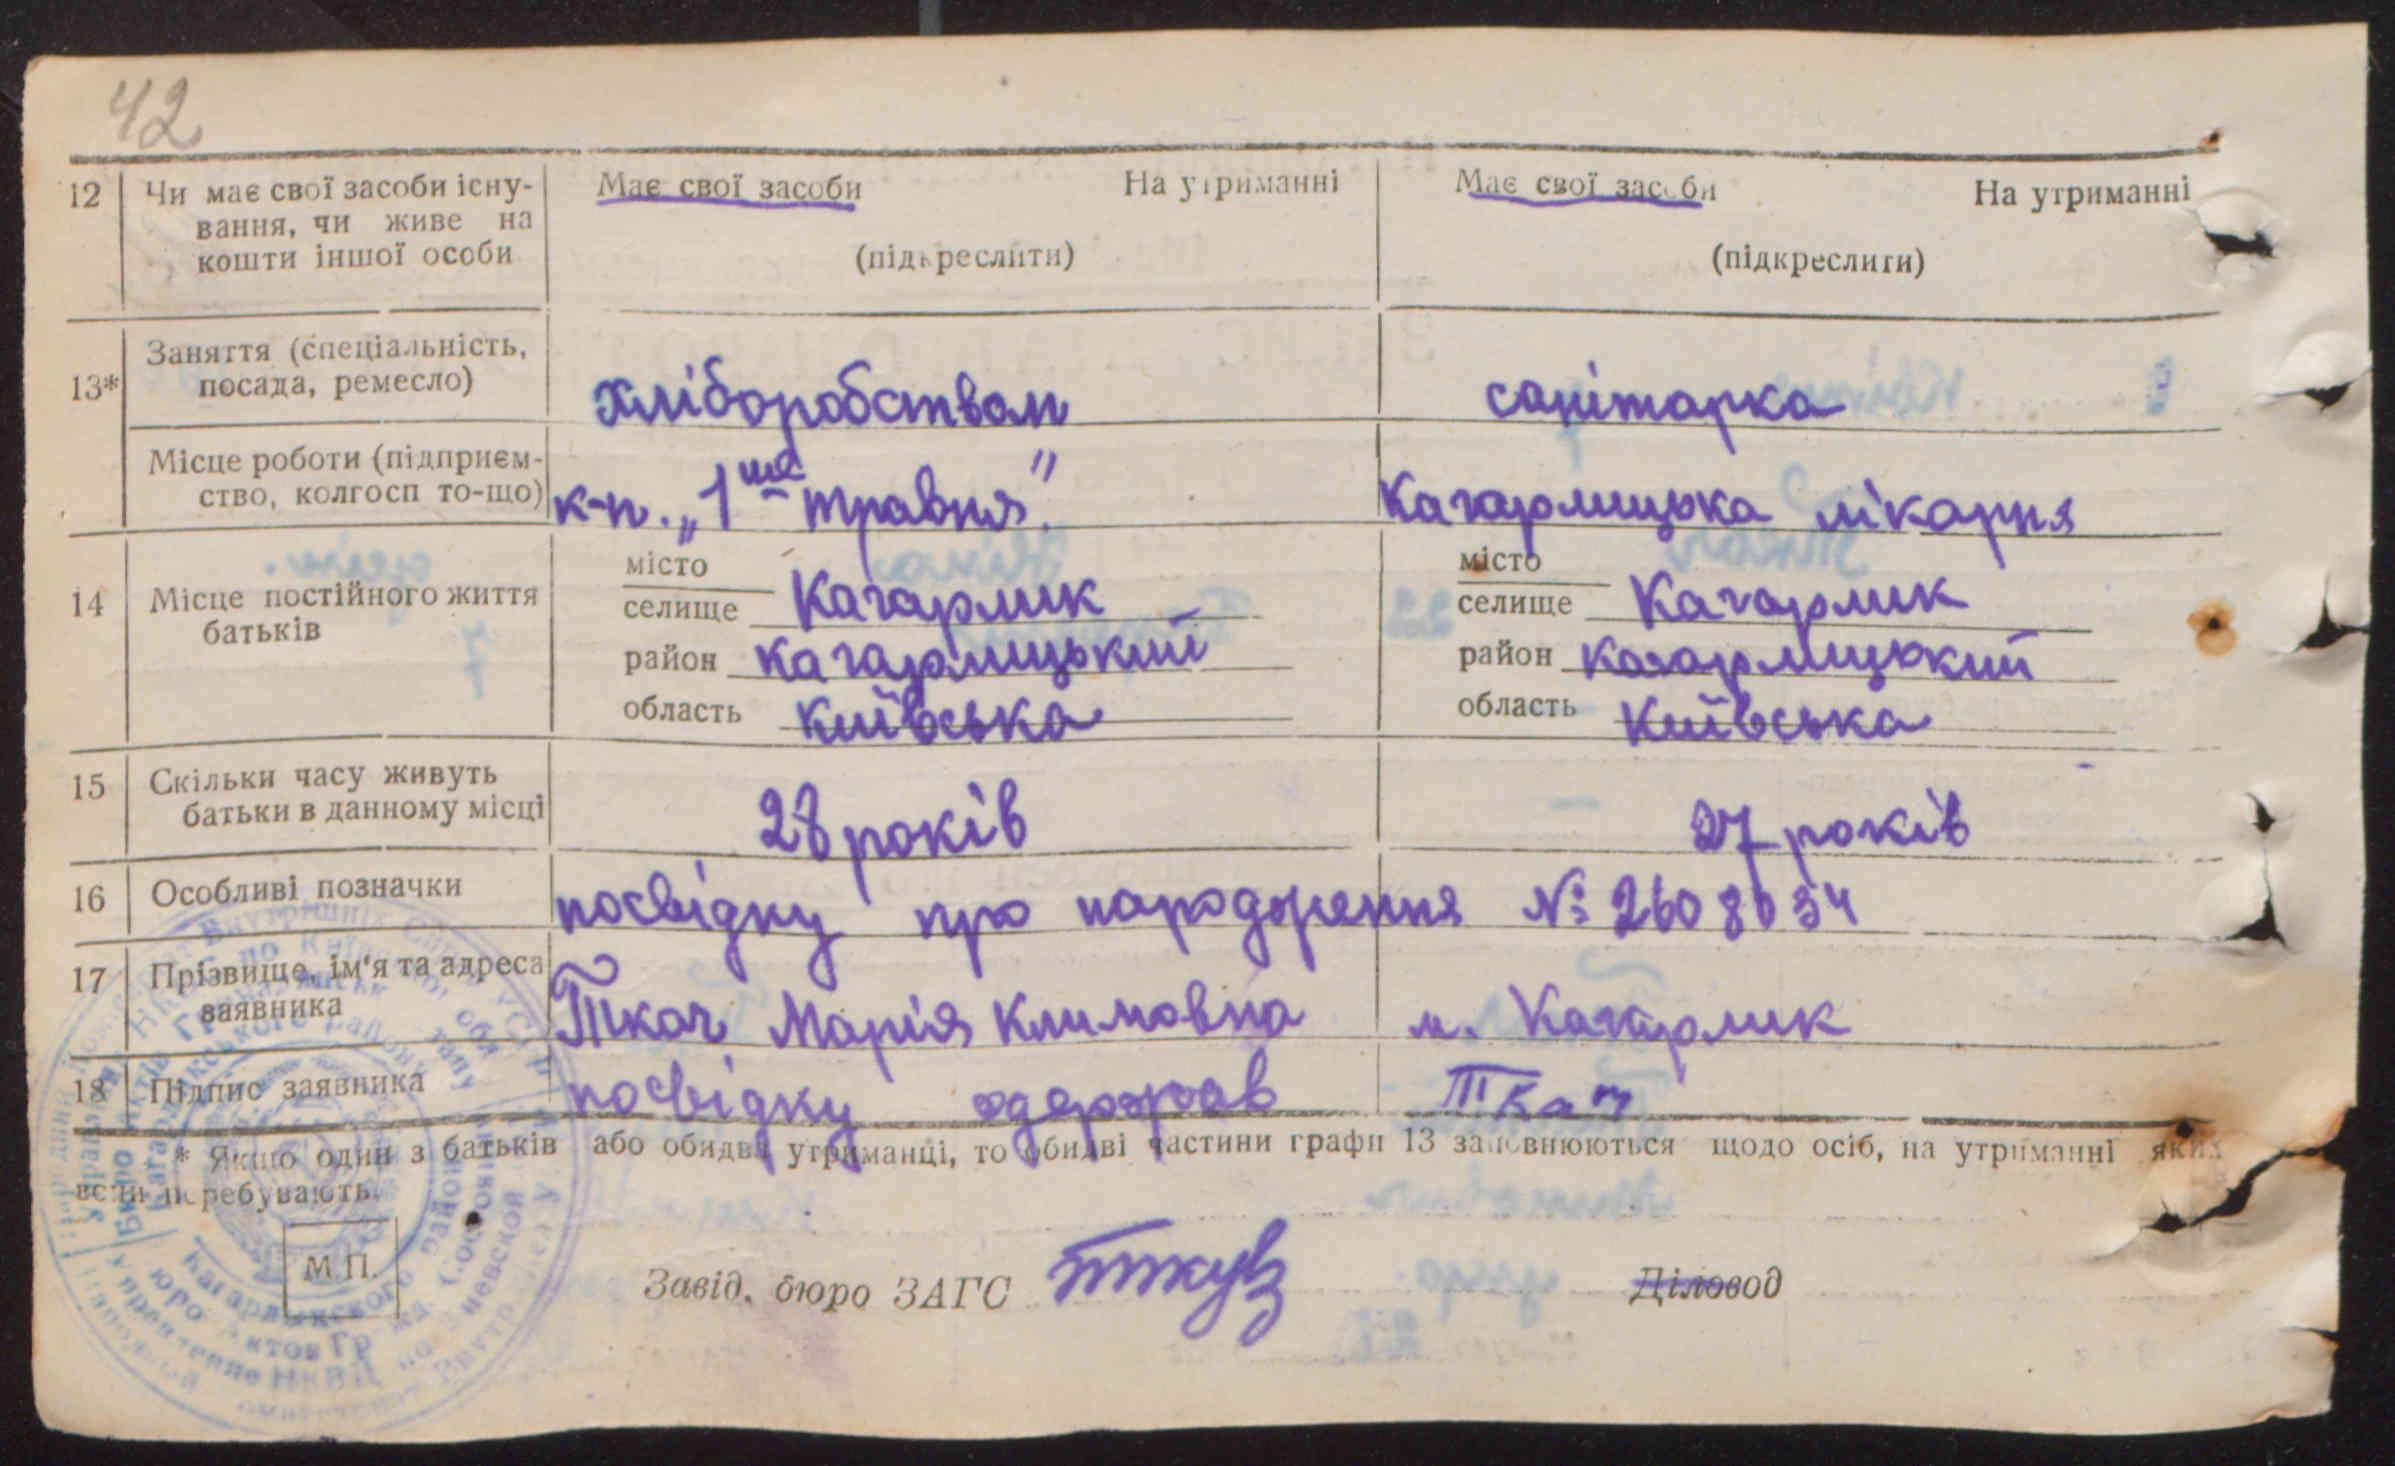 42
12 Чи має свої засоби існу- Має свої засоби На утриманні Має свої засоби На утриманні
вання, чи живе на
кошти іншої особи (підкреслити) (підкреслити)
Заняття (спеціальність,
13* посада, ремесло) хліборобством санітарка
Місце роботи (підприєм-
ство, колгосп то-що) к-п. „1ше травня" Кагарлицька лікарня
місто місто
14 Місце постійного життя селище Кагарлик селище Кагарлик
батьків район Кагарлицький район Кагарлицький
область Київська область Київська
15 Скільки часу живуть
батьки в данному місці 28 років 27 років
16 Особливі позначки посвідку про народження № 2608034
17 Прізвище, ім'я та адреса
заявника Ткач Марія Климовна м. Кагарлик
18 Підпис заявника посвідку одержав Ткач
* Якщо один з батьків або обидва утриманці, то обидві частини графи 13 заповнюються щодо осіб, на утриманні яких
вони перебувають.
М П.
Завід. бюро ЗАГС Діловод